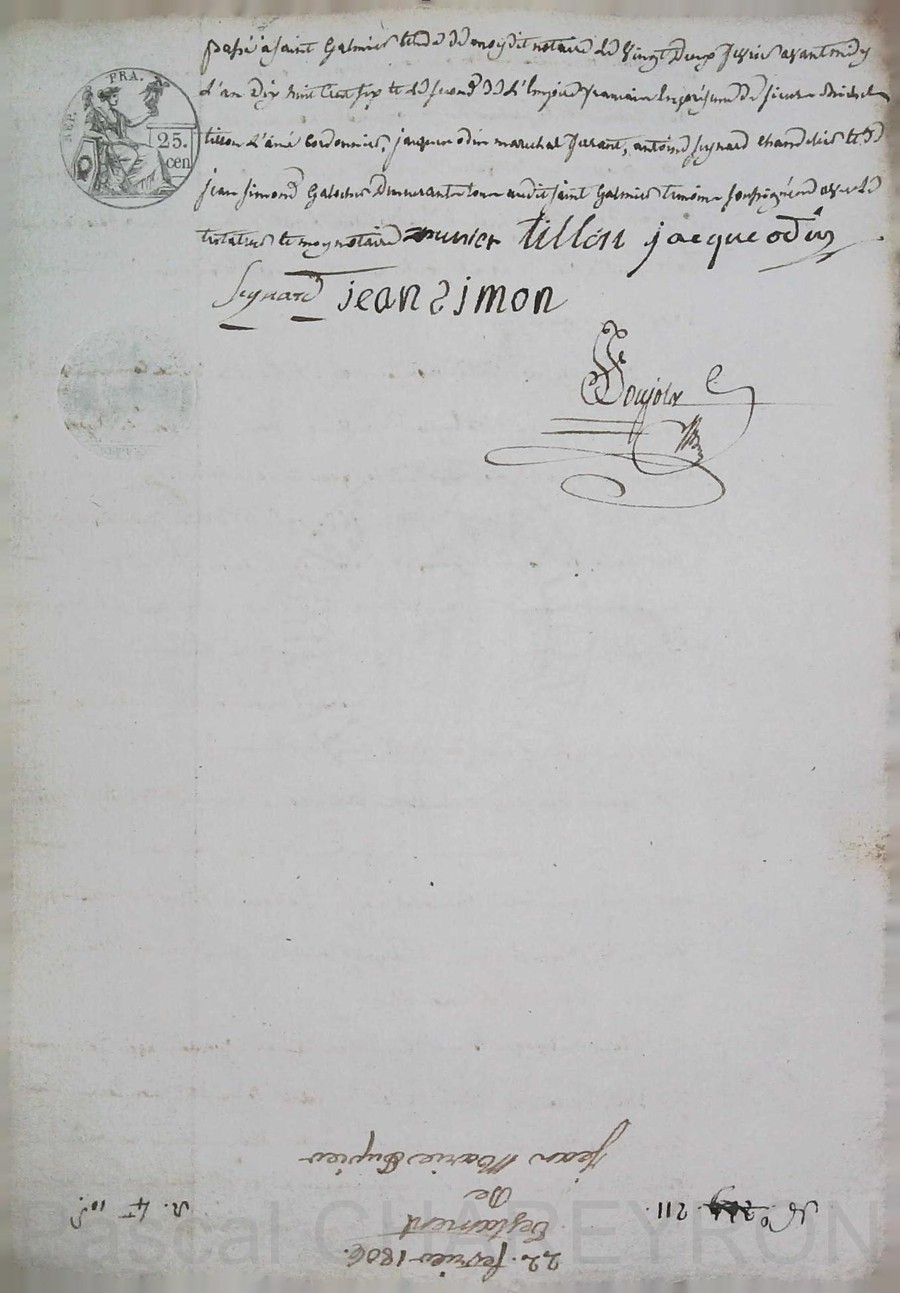 FRA.
REP.
25.
cen
passé a saint Galmier etude de moy dit notaire le vingt deux fevrier avant midy
l'an dix huit cent six et le second de l'Empire francais En presence de sieurs michel
tillon l'ainé cordonnier, jacques odin marechal ferrant, antoine peynard chandelier et de
jean simond Galochier demeurant tous audit saint Galmier temoins soussignés avec le
testateur et moy notaire tillon jacque odin
peynard jean simon
Poujol
22. fevrier 1806.
Testament
De
jean Marie
No 211.
R. 4 10
Pascal CHAREYRON